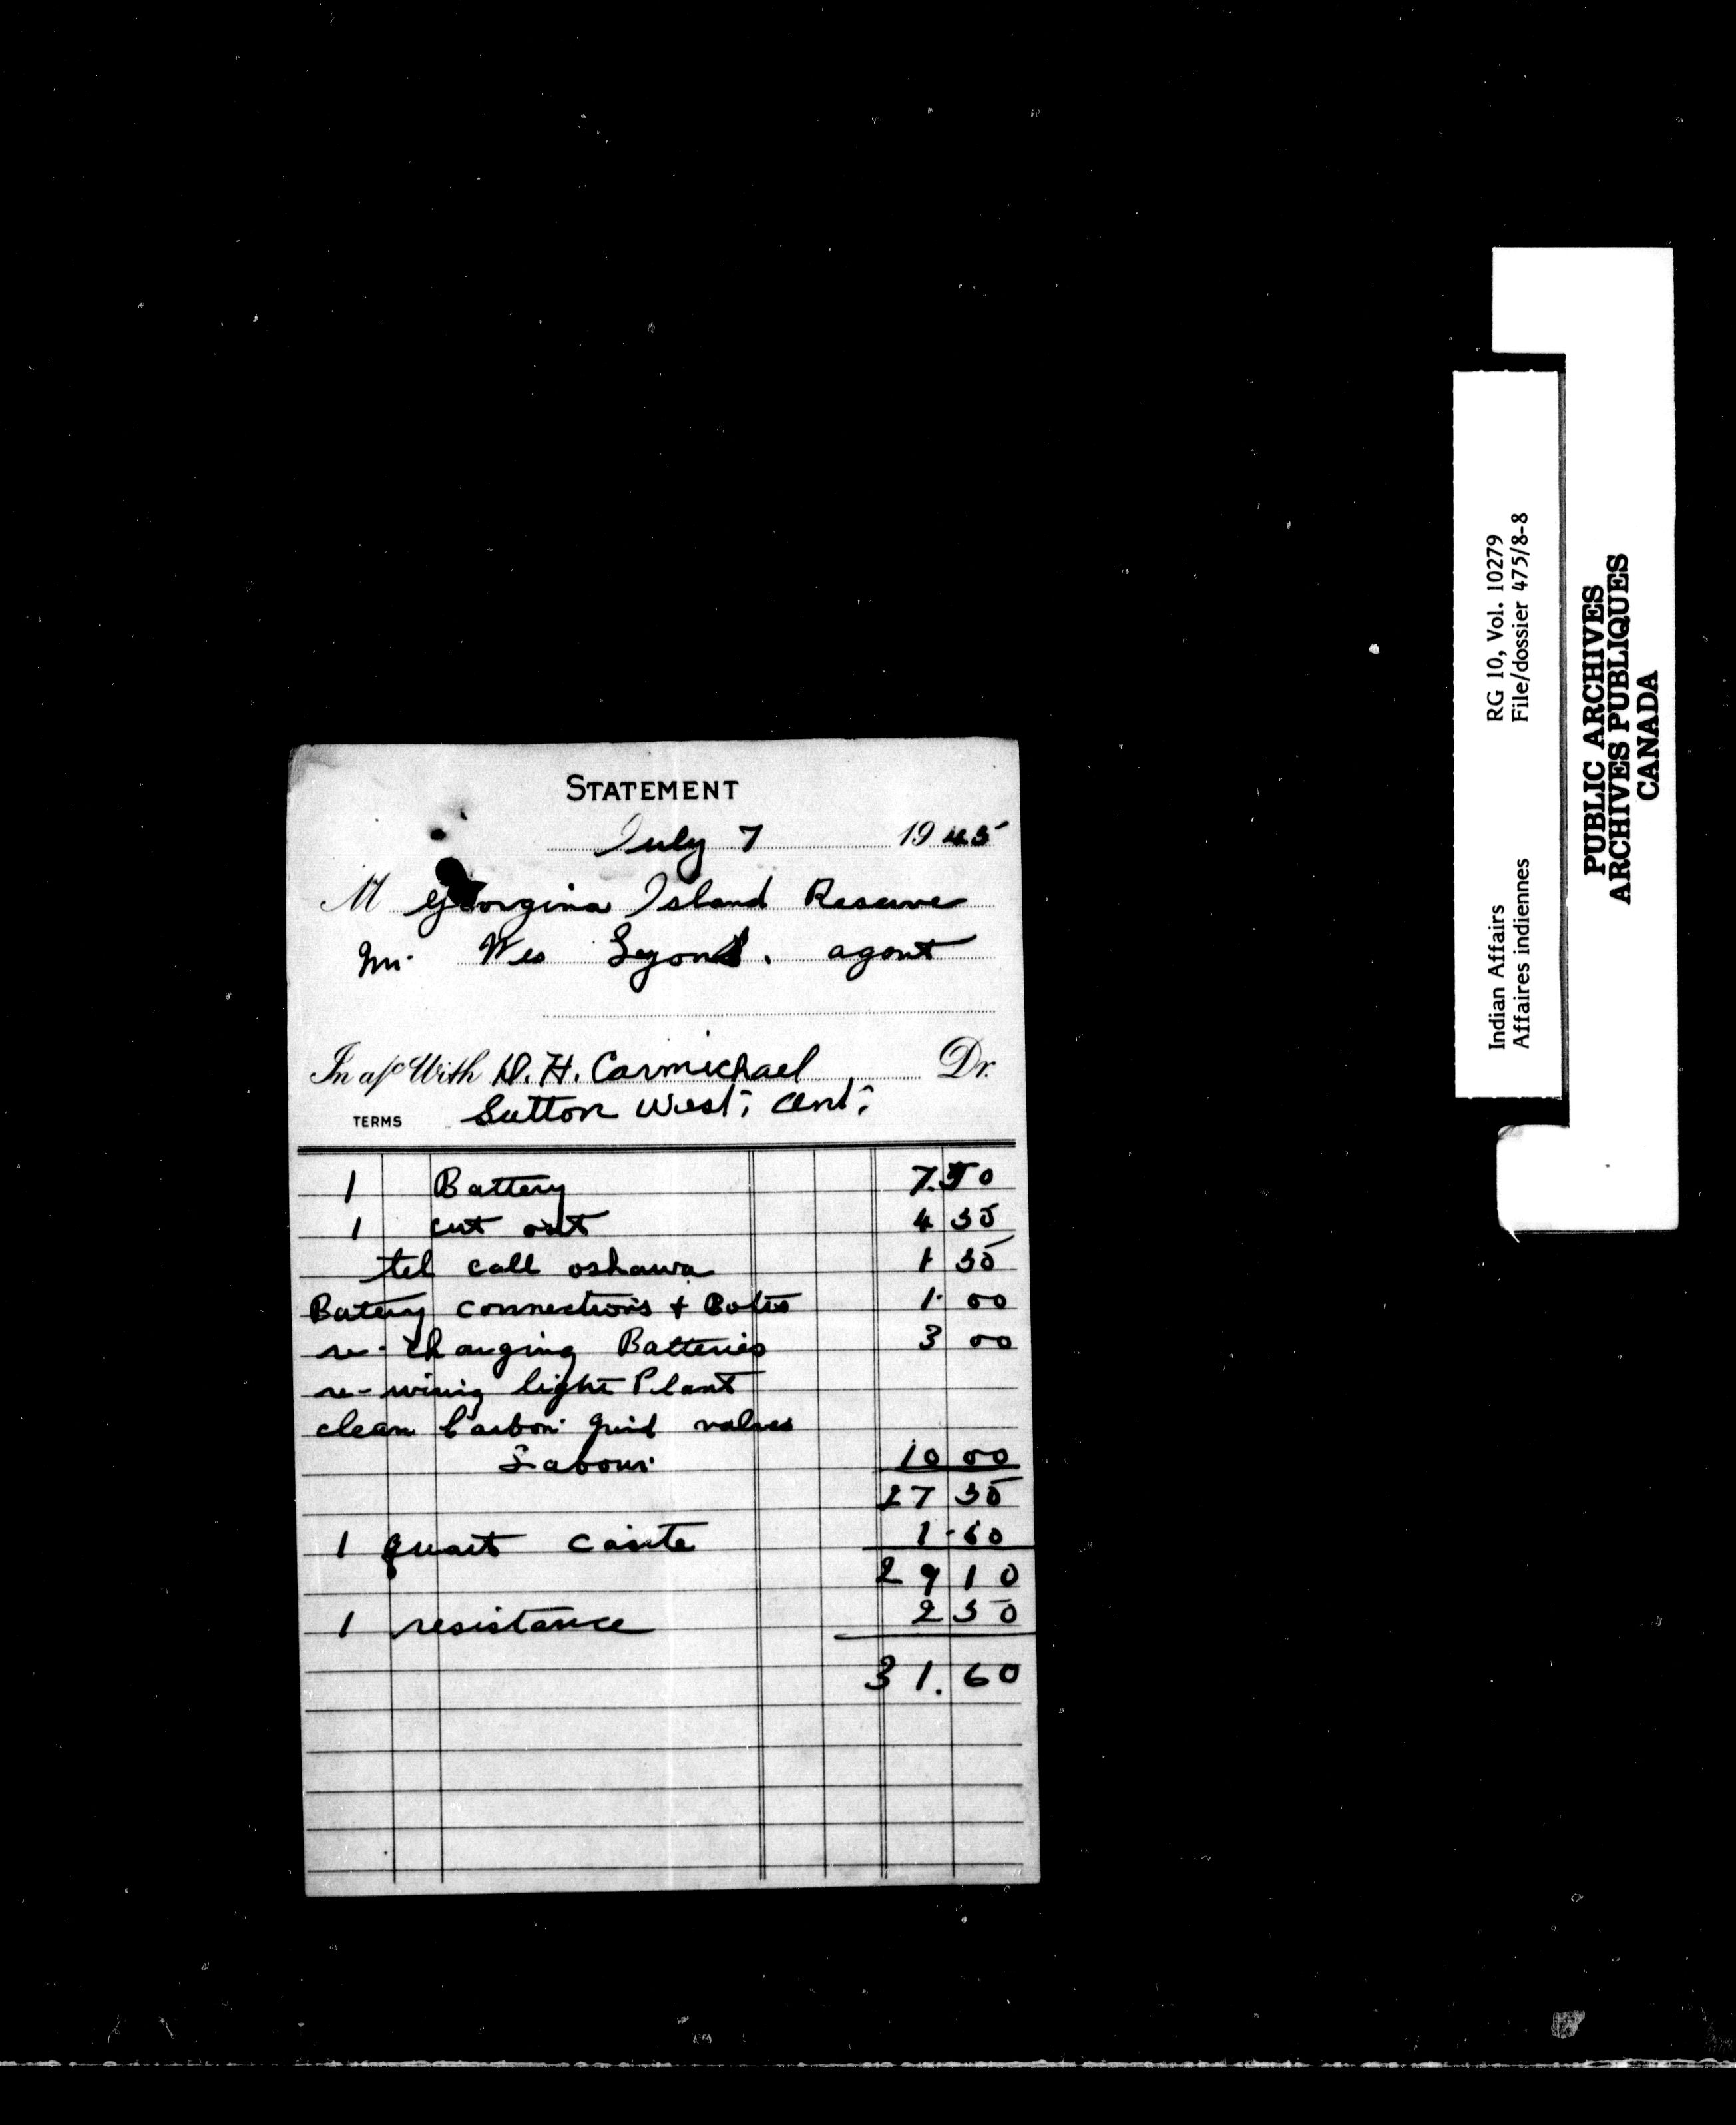 STATEMENT
July 7 1945
M Georgina Island Reserve
Mr. Wes Lyons. agent
In a/c With D. H. Carmichael Dr.
TERMS Sutton West, Ont,
1 Battery 7.50
1 cut out 4 50
tel call oshawa 1 50
Batery connections + Bolts 1. 00
re-charging Batteries 3 00
re-wiring light Plant
clean Carbon grind valves
Labour 10 00
27 50
1 quart casite 1.60
29 10
1 resistance 2 50
31.60
Indian Affairs RG 10, Vol. 10279
Affaires indiennes File/dossier 475/8-8
PUBLIC ARCHIVES
ARCHIVES PUBLIQUES
CANADA